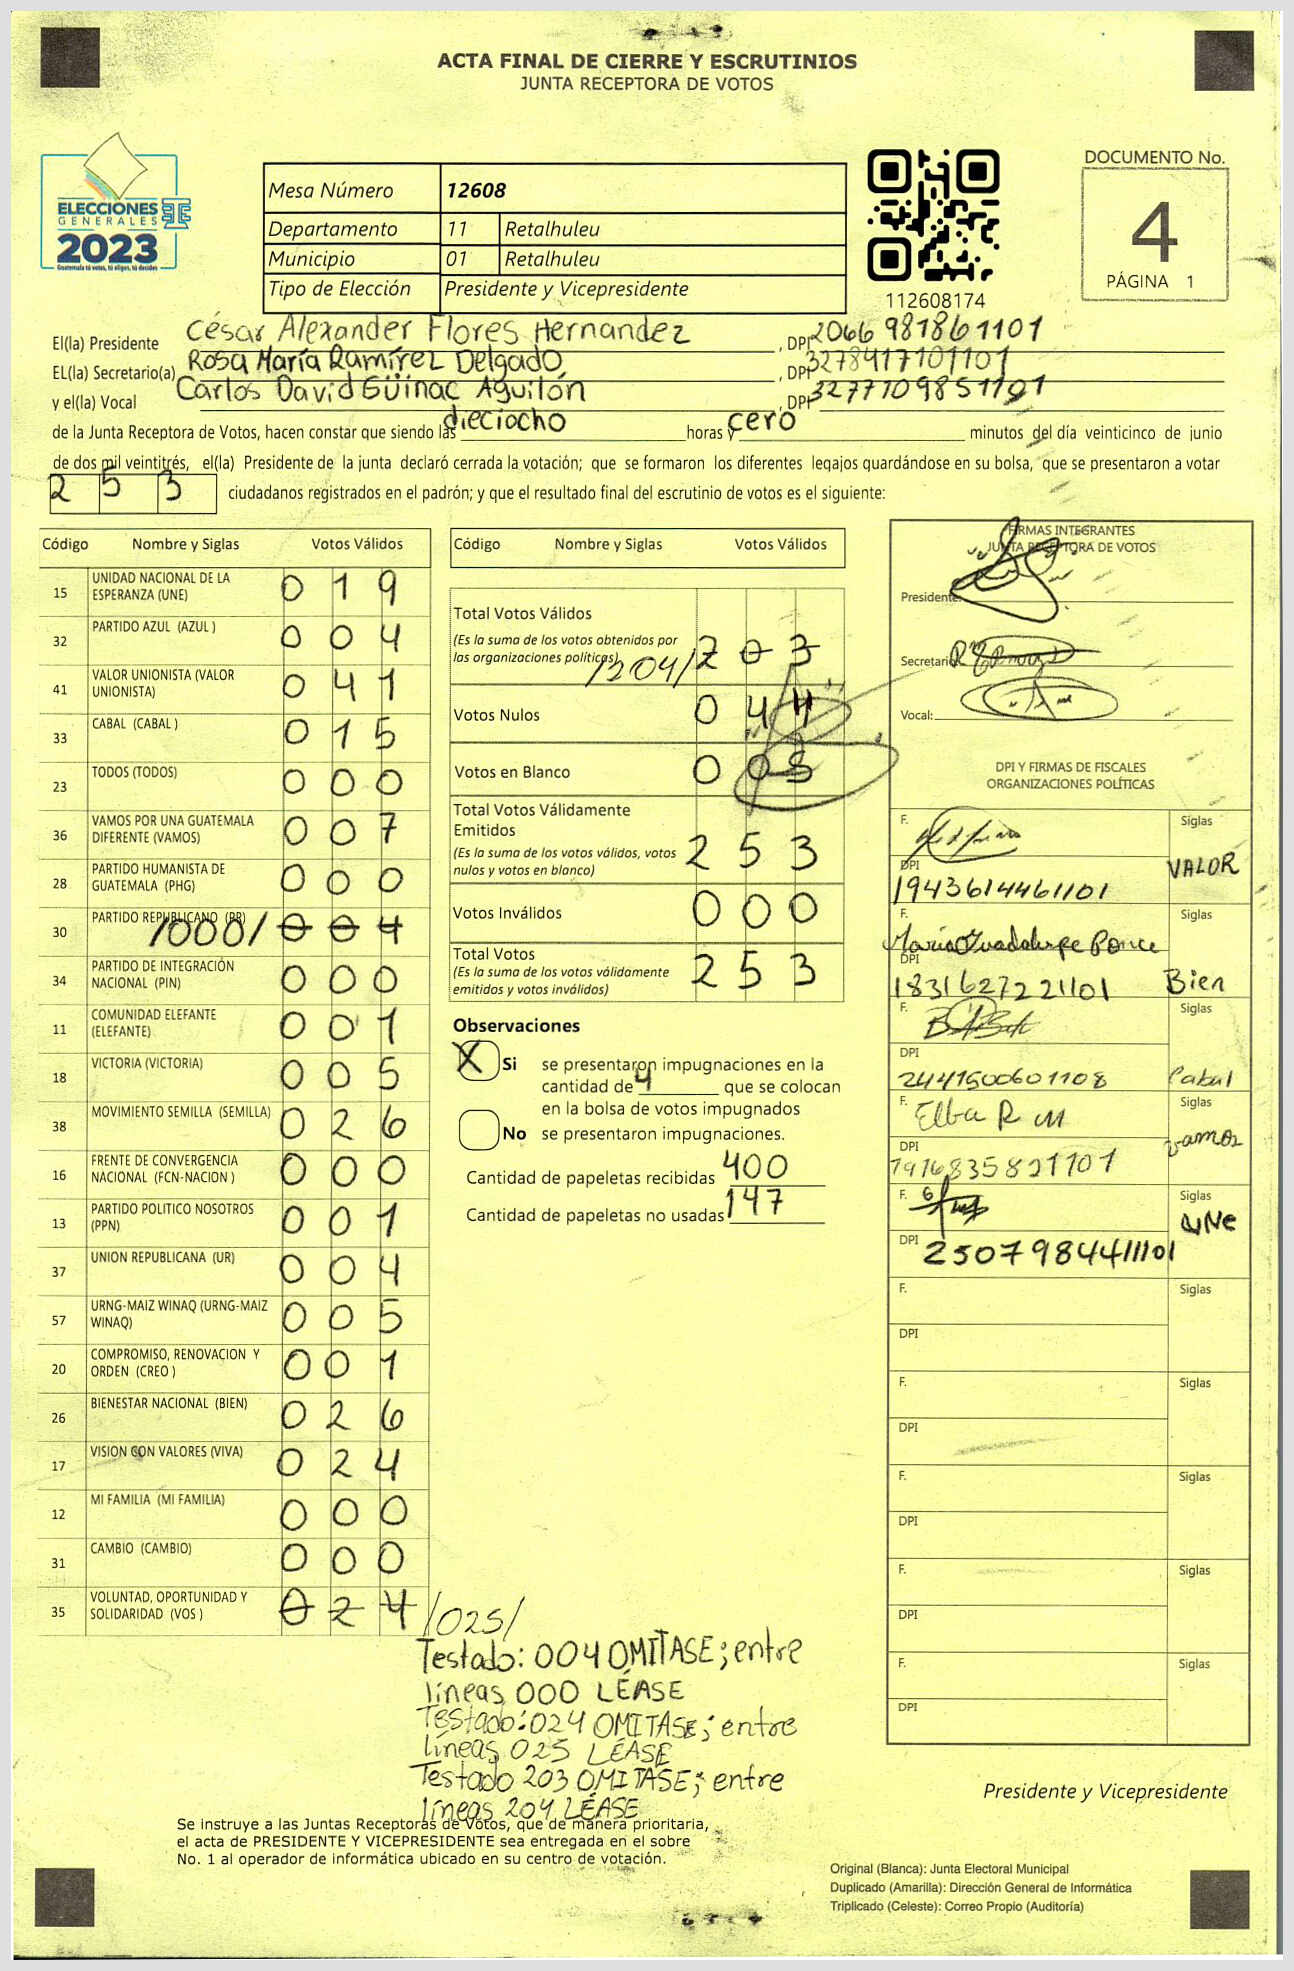 ACTA FINAL DE CIERRE Y ESCRUTINIOS
JUNTA RECEPTORA DE VOTOS
ELECCIONES
GENERALES
2023
Guatemala tú votas, tú eliges, tú decides
Mesa Número 12608
Departamento 11 Retalhuleu
Municipio 01 Retalhuleu
Tipo de Elección Presidente y Vicepresidente
112608174
DOCUMENTO No.
4
PÁGINA 1
El(la) Presidente César Alexander Flores Hernandez, DPI 2066 981861101
EL(la) Secretario(a) Rosa María Ramírez Delgado, DPI 3278417101101
y el(la) Vocal Carlos David Güinac Aguilón, DPI 3277109851101
de la Junta Receptora de Votos, hacen constar que siendo las dieciocho horas y cero minutos del día veinticinco de junio
de dos mil veintitrés, el(la) Presidente de la junta declaró cerrada la votación; que se formaron los diferentes legajos guardándose en su bolsa, que se presentaron a votar
2 5 3 ciudadanos registrados en el padrón; y que el resultado final del escrutinio de votos es el siguiente:
Código Nombre y Siglas Votos Válidos
15 UNIDAD NACIONAL DE LA ESPERANZA (UNE) 0 1 9
32 PARTIDO AZUL (AZUL ) 0 0 4
41 VALOR UNIONISTA (VALOR UNIONISTA) 0 4 1
33 CABAL (CABAL ) 0 1 5
23 TODOS (TODOS) 0 0 0
36 VAMOS POR UNA GUATEMALA DIFERENTE (VAMOS) 0 0 7
28 PARTIDO HUMANISTA DE GUATEMALA (PHG) 0 0 0
30 PARTIDO REPUBLICANO (PR) /000/ 0 0 4
34 PARTIDO DE INTEGRACIÓN NACIONAL (PIN) 0 0 0
11 COMUNIDAD ELEFANTE (ELEFANTE) 0 0 1
18 VICTORIA (VICTORIA) 0 0 5
38 MOVIMIENTO SEMILLA (SEMILLA) 0 2 6
16 FRENTE DE CONVERGENCIA NACIONAL (FCN-NACION ) 0 0 0
13 PARTIDO POLITICO NOSOTROS (PPN) 0 0 1
37 UNION REPUBLICANA (UR) 0 0 4
57 URNG-MAIZ WINAQ (URNG-MAIZ WINAQ) 0 0 5
20 COMPROMISO, RENOVACION Y ORDEN (CREO ) 0 0 1
26 BIENESTAR NACIONAL (BIEN) 0 2 6
17 VISION CON VALORES (VIVA) 0 2 4
12 MI FAMILIA (MI FAMILIA) 0 0 0
31 CAMBIO (CAMBIO) 0 0 0
35 VOLUNTAD, OPORTUNIDAD Y SOLIDARIDAD (VOS ) 0 2 4 /025/
Testado: 004 OMITASE; entre
líneas 000 LÉASE
Testado: 024 OMITASE; entre
líneas 025 LÉASE
Testado 203 OMITASE; entre
líneas 204 LÉASE
Código Nombre y Siglas Votos Válidos
Total Votos Válidos
(Es la suma de los votos obtenidos por
las organizaciones políticas) /204/ 2 0 3
Votos Nulos 0 4 4
Votos en Blanco 0 0 5
Total Votos Válidamente
Emitidos
(Es la suma de los votos válidos, votos
nulos y votos en blanco) 2 5 3
Votos Inválidos 0 0 0
Total Votos
(Es la suma de los votos válidamente
emitidos y votos inválidos) 2 5 3
Observaciones
X Si se presentaron impugnaciones en la
cantidad de 4 que se colocan
en la bolsa de votos impugnados
No se presentaron impugnaciones.
Cantidad de papeletas recibidas 400
Cantidad de papeletas no usadas 147
FIRMAS INTEGRANTES
JUNTA RECEPTORA DE VOTOS
Presidente:
Secretario
Vocal:
DPI Y FIRMAS DE FISCALES
ORGANIZACIONES POLÍTICAS
F. Siglas
DPI 1943614461101 VALOR
F. María Guadalupe Ponce Siglas
DPI 1831627221101 Bien
F. Siglas
DPI 2441500601108 Cabal
F. Elba R M Siglas
DPI 1916835821101 vamos
F. Siglas
DPI 2507984411101 UNe
F. Siglas
DPI
F. Siglas
DPI
F. Siglas
DPI
F. Siglas
DPI
F. Siglas
DPI
Presidente y Vicepresidente
Se instruye a las Juntas Receptoras de Votos, que de manera prioritaria,
el acta de PRESIDENTE Y VICEPRESIDENTE sea entregada en el sobre
No. 1 al operador de informática ubicado en su centro de votación.
Original (Blanca): Junta Electoral Municipal
Duplicado (Amarilla): Dirección General de Informática
Triplicado (Celeste): Correo Propio (Auditoría)